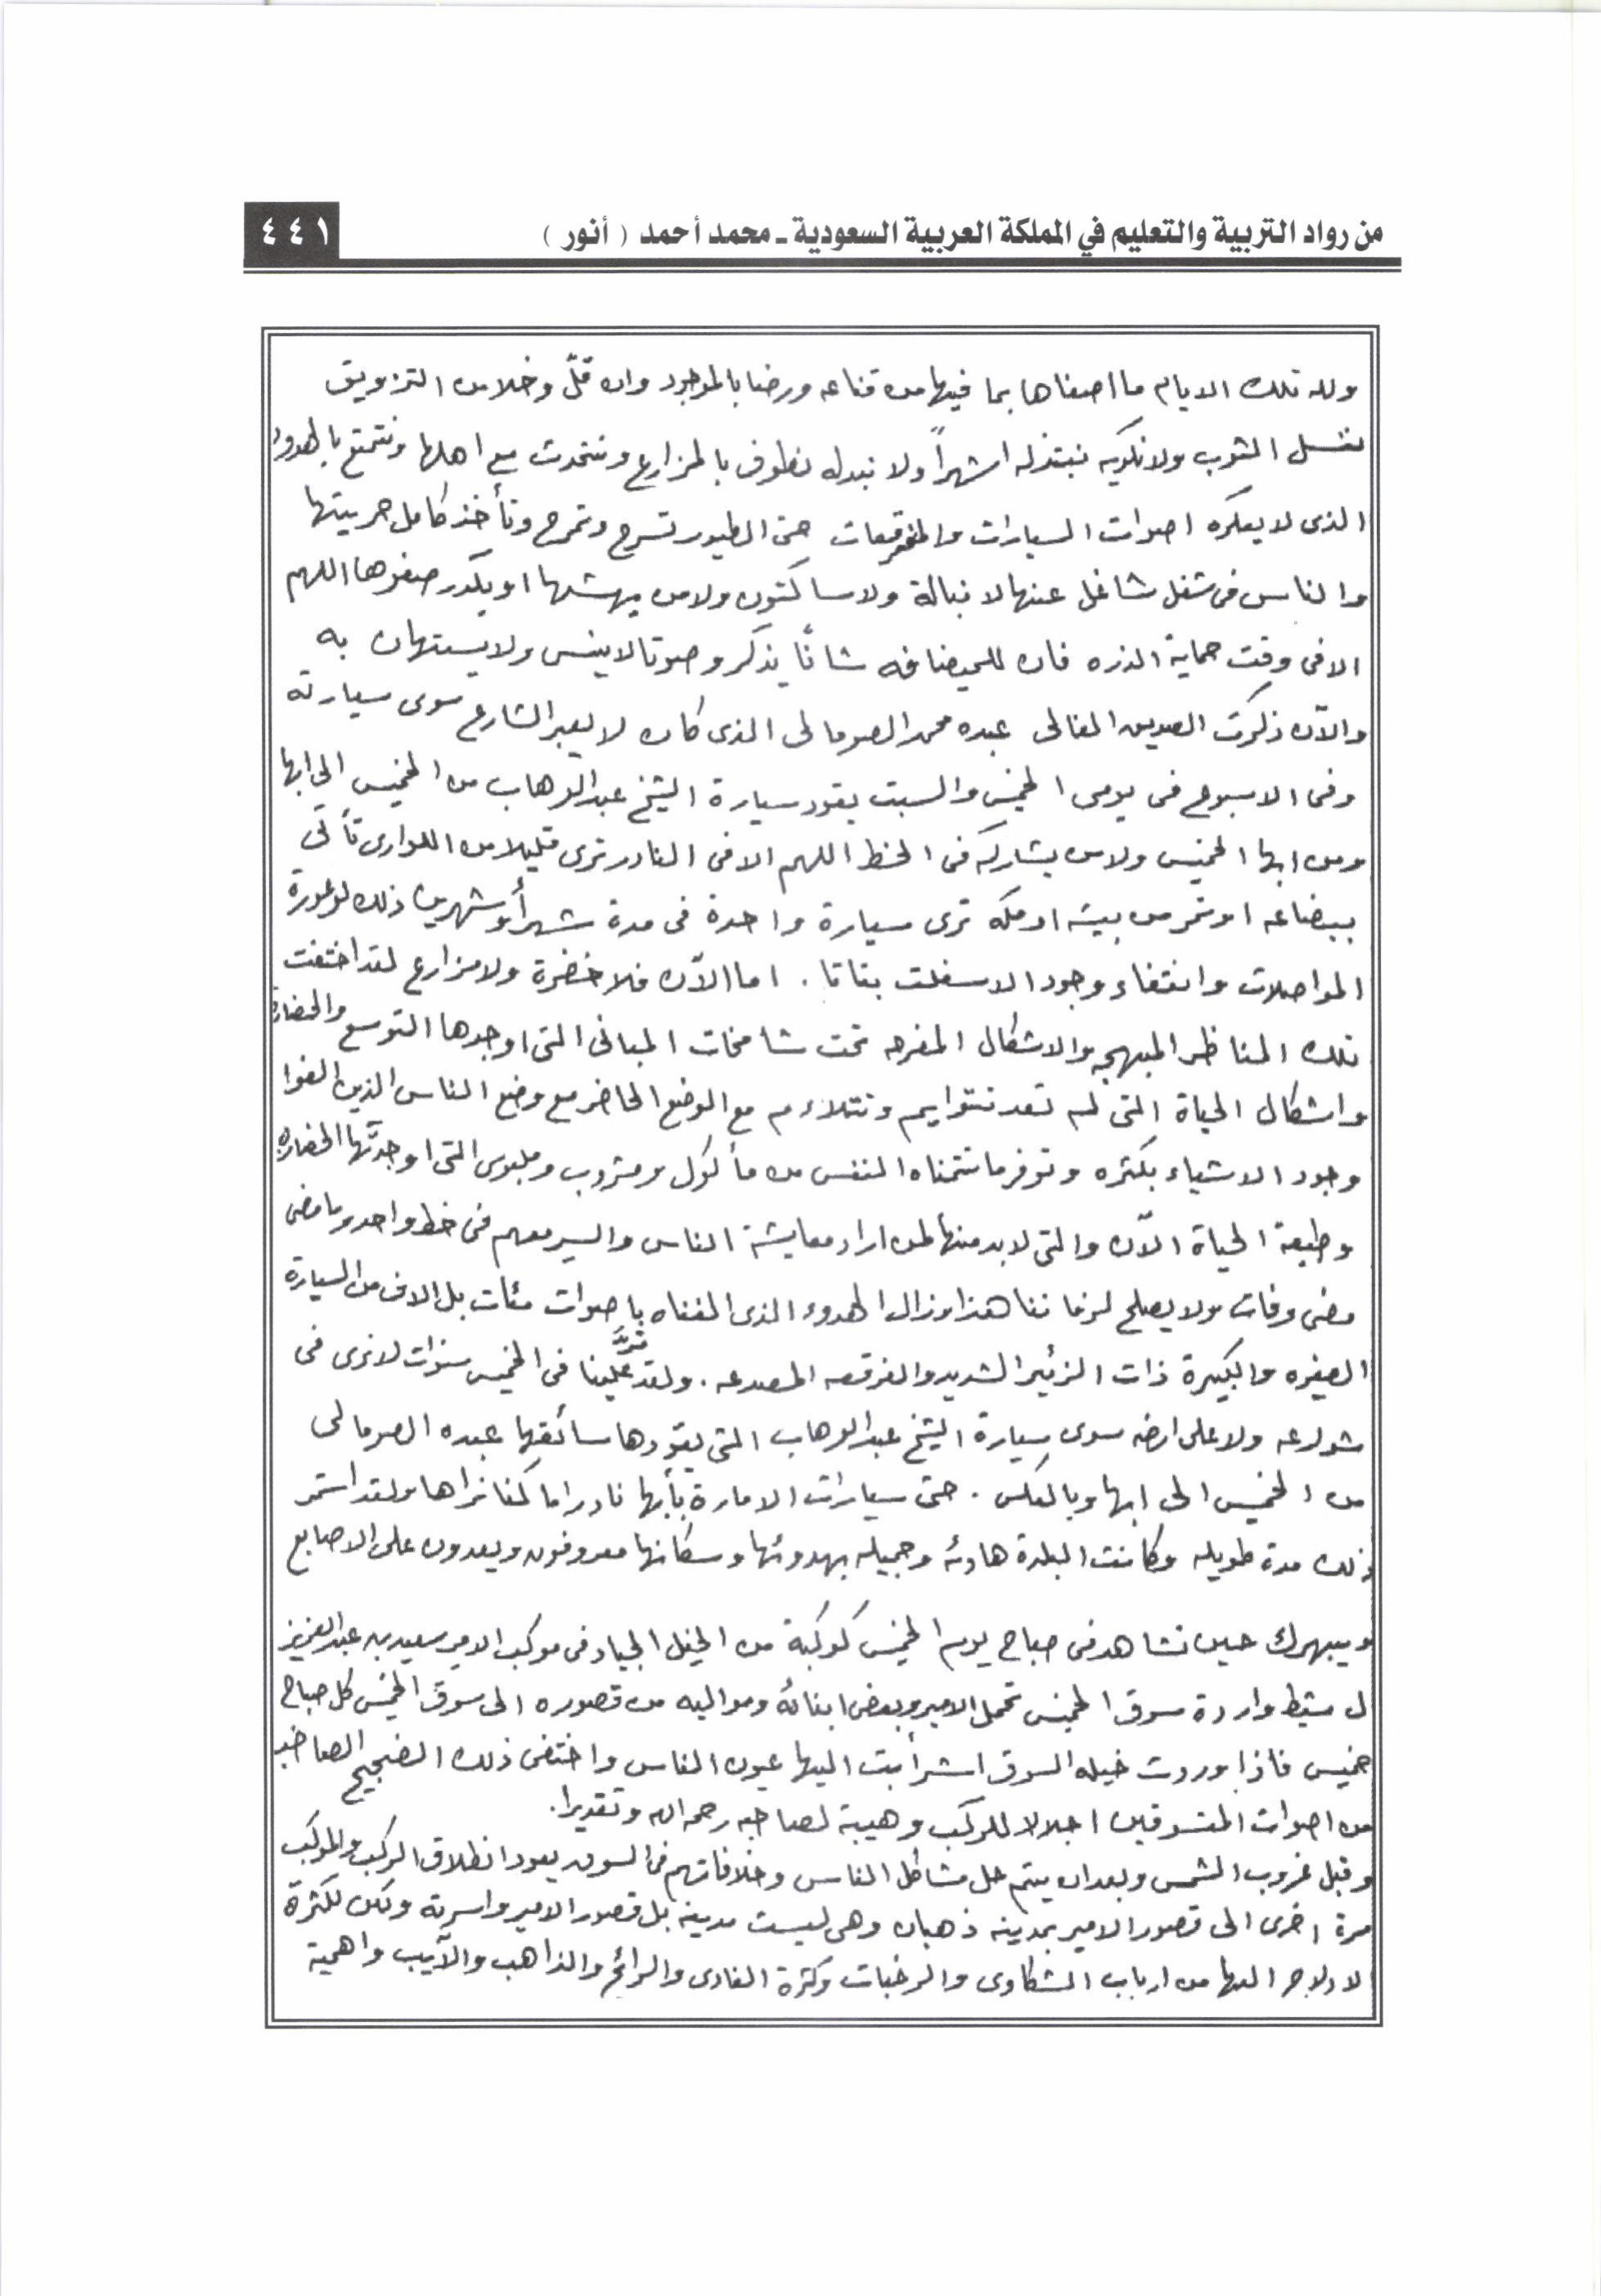 من رواد التربية والتعليم في المملكة العربية السعودية ـ محمد أحمد ( أنور )
٤٤١
ولله تلك الايام ما اصفاها بما فيها من قناعه ورضا بالموجود وان قلّ وخلا من التزويق
نغسل الثوب ولا نكويه نبتذله اشهراً ولا نبدله نطوف بالمزارع ونتحدث مع اهلها ونتمتع بالهدوء
الذى لا يعكره اصوات السيارات والمفرقعات حتى الطيور تسرح وتمرح وتأخذ كامل حريتها
والناس فى شغل شاغل عنها لا نبالة ولا ساكتون ولا من يهشها او يكدر صفوها اللهم
الا فى وقت حماية الذره فان للميضافه شانًا يذكر وصوتا لا ينسى ولا يستهان به
والآن ذكرت الصديق الغالى عبده محمد الصومالى الذى كان لا يعبر الشارع سوى سيارته
وفى الاسبوع فى يومى الخميس والسبت يقود سيارة الشيخ عبدالوهاب من الخميس الى ابها
ومن ابها الخميس ولا من يشاركه فى الخط اللهم الا فى النادر ترى قليلا من اللوارى تأتى
ببضاعه او تمر من بيشه او مكه ترى سيارة واحدة فى مدة شهر أو شهرين ذلك لوعورة
المواصلات وانتفاء وجود الاسفلت بتاتا . اما الآن فلا خضرة ولا مزارع لقد اختفت
تلك المناظر المبهجه والاشكال المفرحه تحت شامخات المبانى التى اوجدها التوسع والحضارة
واشكال الحياة التى لم تعد تتوايم وتتلاءم مع الوضع الحاضر مع وضع الناس الذين الفوا
وجود الاشياء بكثره وتوفر ما تتمناه النفس من مأكول ومشروب وملبوس التى اوجدتَّها الحضاره
وطبيعة الحياة الآن والتى لابد منها لمن اراد معايشة الناس والسير معهم فى خط واحد وما مضى
مضى وفات ولا يصلح لزماننا هذا وزال الهدوء الذى الفناه باصوات مئات بل الاف من السيارة
الصغيره والكبيرة ذات الزئير الشديد والفرقعه المصدعه . ولقد تمرَّ علينا فى الخميس سنوات لا نرى فى
شوارعه ولا على ارضه سوى سيارة الشيخ عبدالوهاب التى يقودها سائقها عبده الصومالى
من الخميس الى ابها وبالعكس . حتى سيارات الامارة بأبها نادرا ما كنا نراها ولقد استمر
ذلك مدة طويله وكانت البلدة هادئه وجميله بهدوئها وسكانها معروفون ويعدون على الاصابع
ويبهرك حين تشاهد فى صباح يوم الخميس كوكبة من الخيل الجياد فى موكب الامير سعيد بن عبدالعزيز
ل مشيط واردة سوق الخميس تحمل الامير وبعض ابنائه ومواليه من قصوره الى سوق الخميس كل صباح
خميس فاذا وردت خيله السوق اشرأبت اليها عيون الناس واختفى ذلك الضجيج الصاخب
من اصوات المتسوقين اجلالا للركب وهيبة لصاحبه رحمه الله وتقديرا.
وقبل غروب الشمس وبعد ان يتم حل مشاكل الناس وخلافاتهم فى السوق يعود انطلاق الركب والموكب
مرة اخرى الى قصور الامير بمدينه ذهبان وهى ليست مدينه بل قصور الامير واسرته ولكن لكثرة
الادلاج اليها من ارباب الشكاوى والرغبات وكثرة الغادى والرائح والذاهب والآيب واهمية